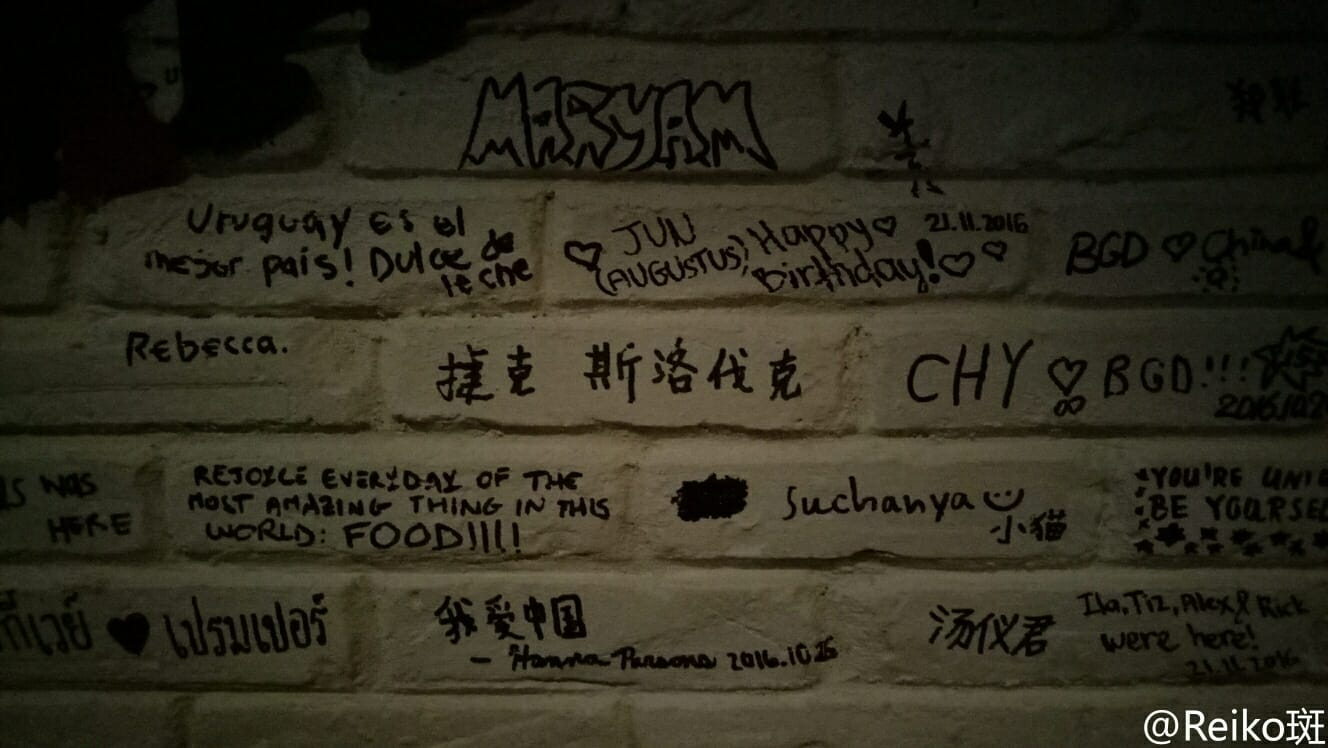 MARYAM
Uruguay es el
mejor pais! Dulce de
leche
JUN
(AUGUSTUS)
Happy♡
Birthday!♡♡
21.11.2016
BGD ♡ China &
Rebecca.
捷克 斯洛伐克
CHY ♡ BGD!!!
WAS
HERE
REJOICE EVERYDAY OF THE
MOST AMAZING THING IN THIS
WORLD: FOOD!!!!
Suchanya
小猫
YOU'RE
BE
กีเวย์ ♥ เปรมเปอร์
我爱中国
- Hanna Parsons 2016.10.26
汤仪君
Ila, Tiz, Alex & Rick
were here!
21.11.2016
@Reiko斑